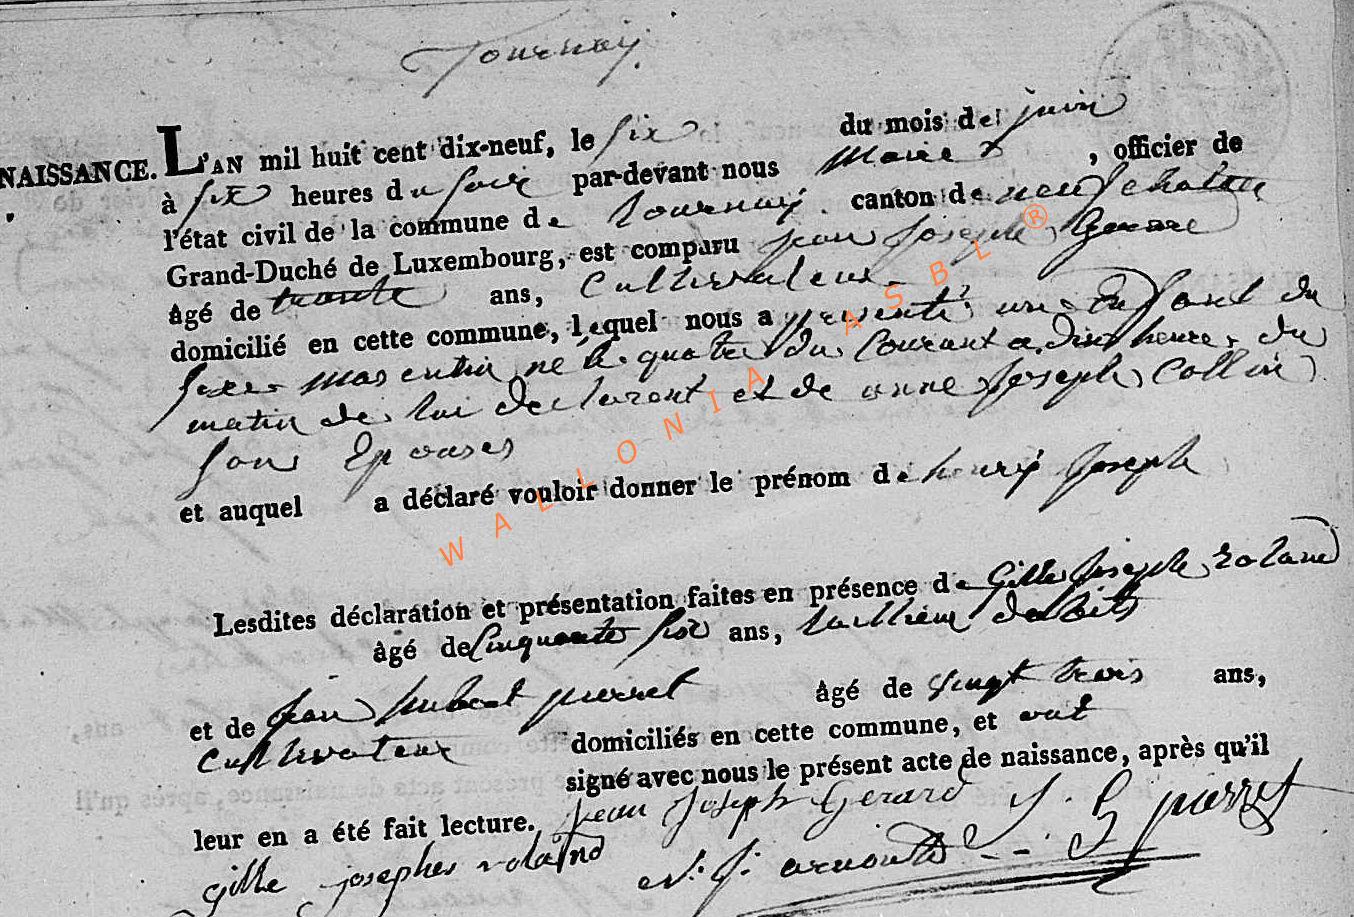 Tournay.
NAISSANCE. L'AN mil huit cent dix-neuf, le six du mois de juin
à six heures du soir par-devant nous Maire , officier de
l'état civil de la commune de tournay canton de neufchatau
Grand-Duché de Luxembourg, est comparu jean joseph Gerare
âgé de trante ans, Cultivateur
domicilié en cette commune, lequel nous a presenté un Enfant du
sexe mascutin né le quatre du Courant a dix heures du
matin de lui declarant et de anne joseph Collin
son Epouses
et auquel a déclaré vouloir donner le prénom de henry joseph
Lesdites déclaration et présentation faites en présence de Gille joseph roland
âgé de Cinquante six ans,
et de jean hubert pierret âgé de vingt trois ans,
Cultivateur domiciliés en cette commune, et ont
signé avec nous le présent acte de naissance, après qu'il
leur en a été fait lecture. jean joseph Gerard J. H pierret
gille josephes roland N. J. arnould
WALLONIA ASBL ®